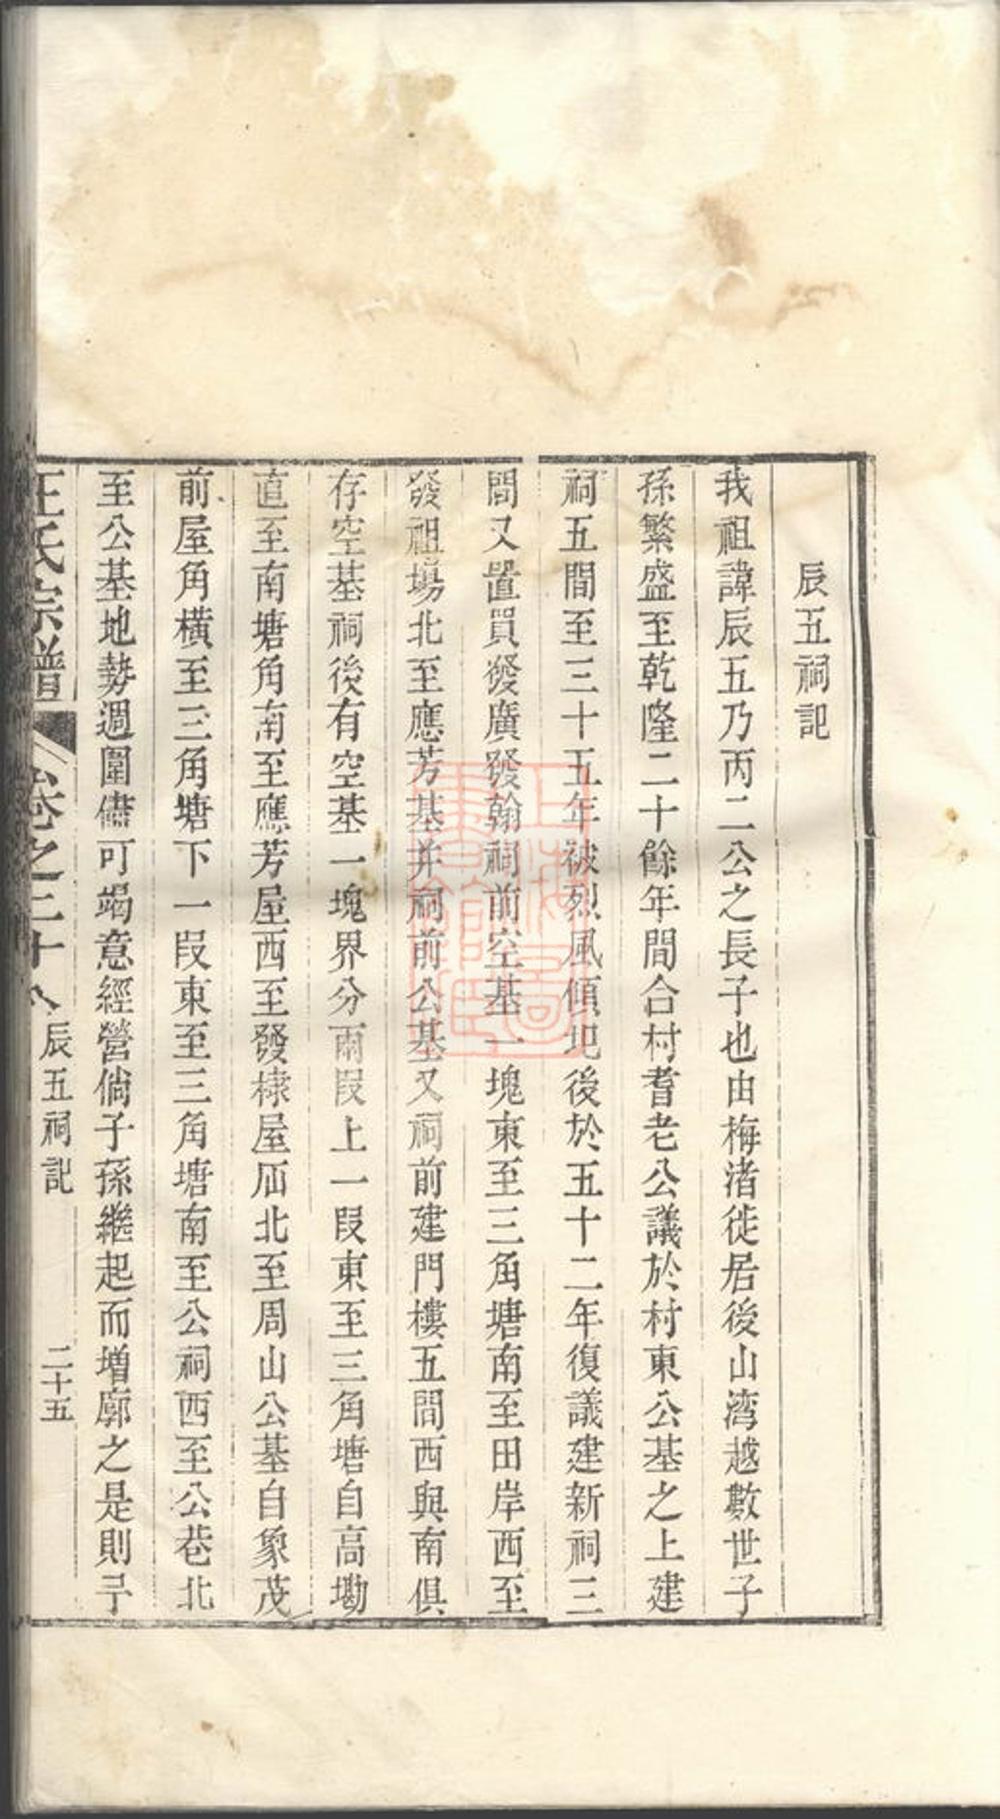 辰五祠記
我祖諱辰五乃丙二公之長子也由梅渚徙居後山湾越數世子
孫繁盛至乾隆二十餘年間合村耆老公議於村東公基之上建
祠五間至三十五年被烈風傾圯後於五十二年復議建新祠三
間又置買發廣發翰祠前空基一塊東至三角塘南至田岸西至
發祖塲北至應芳基并祠前公基又祠前建門樓五間西與南俱
存空基祠後有空基一塊界分兩叚上一叚東至三角塘自高墈
直至南塘角南至應芳屋西至發棣屋后北至周山公基自象茂
前屋角橫至三角塘下一叚東至三角塘南至公祠西至公巷北
至公基地勢週圍儘可竭意經營倘子孫繼起而增廓之是則予
王氏宗譜
卷之二十八
辰五祠記
二十五
上海圖書館藏